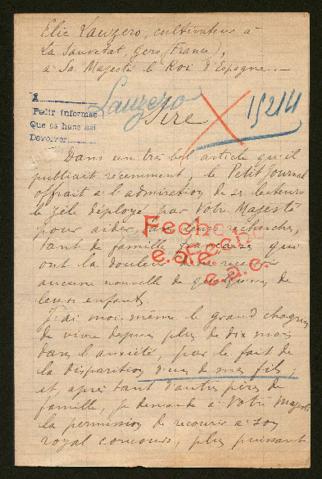 Elie Lauzero, cultivateur à
La Sauvetat, Gers (France),
à Sa Majesté le Roi d'Espagne.-
Lauzero
15214
Pedir informes
Que se hane así
Devolver
Sire
Dans un très bel article qu'il
publiait récemment, le Petit Journal
offrait à l'admiration de ses lecteurs
le zèle déployé par Votre Majesté
pour aider dans leurs recherches,
tant de familles françaises qui
ont la douleur de ne recevoir
aucune nouvelle de quelqu'un de
leurs enfants.
Fecho
e.a.e.
Fecho
e.a.c.
J'ai moi-même le grand chagrin
de vivre depuis plus de dix mois
dans l'anxiété, par le fait de
la disparition d'un de mes fils,
et après tant d'autres pères de
famille, je demande à Votre Majesté
la permission de recourir à son
royal concours, plus puissant